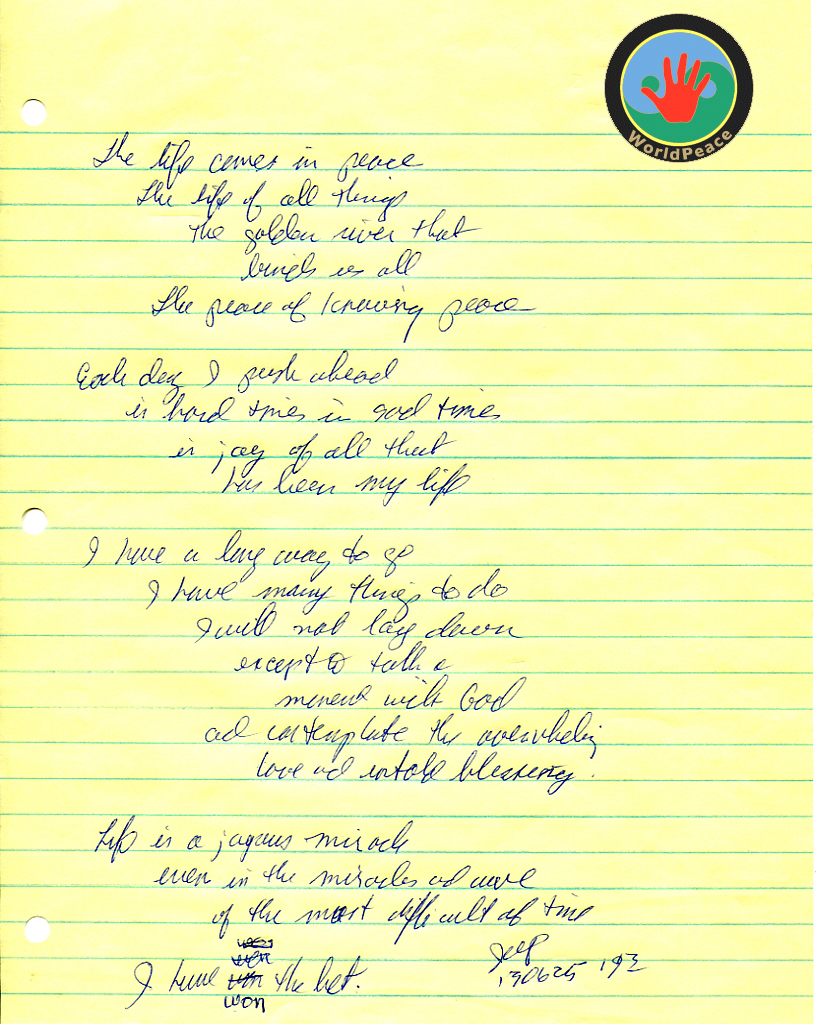 WorldPeace
The life comes in peace
The life of all things
The golden river that
brings us all
The peace of knowing peace
Each day I push ahead
in hard times in good times
in joy of all that
has been my life
I have a long way to go
I have many things to do
I will not lay down
except to talk a
moment with God
ad contemplate the
love ad untold blessings.
Life is a joyous miracle
even in the miracles ad
of the most difficult of time
I have won the bet.
130625 193